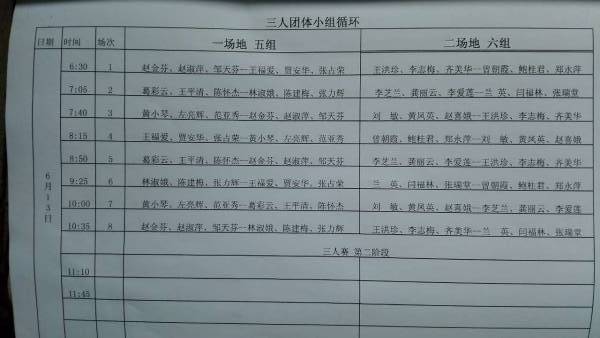 三人团体小组循环
日期 时间 场次 一场地 五组 二场地 六组
6月13日
6:30 1 赵金芬、赵淑萍、邹天芬—王福爱、贾安华、张占荣 王洪珍、李志梅、齐美华—曾朝霞、鲍桂君、郑永萍
7:05 2 葛彩云、王平清、陈怀杰—林淑娥、陈建梅、张力辉 李芝兰、龚丽云、李爱莲—兰 英、闫福林、张瑞堂
7:40 3 黄小琴、左亮辉、范亚秀—赵金芬、赵淑萍、邹天芬 刘 敏、黄凤英、赵喜娥—王洪珍、李志梅、齐美华
8:15 4 王福爱、贾安华、张占荣—黄小琴、左亮辉、范亚秀 曾朝霞、鲍桂君、郑永萍—刘 敏、黄凤英、赵喜娥
8:50 5 葛彩云、王平清、陈怀杰—赵金芬、赵淑萍、邹天芬 李芝兰、龚丽云、李爱莲—王洪珍、李志梅、齐美华
9:25 6 林淑娥、陈建梅、张力辉—王福爱、贾安华、张占荣 兰 英、闫福林、张瑞堂—曾朝霞、鲍桂君、郑永萍
10:00 7 黄小琴、左亮辉、范亚秀—葛彩云、王平清、陈怀杰 刘 敏、黄凤英、赵喜娥—李芝兰、龚丽云、李爱莲
10:35 8 赵金芬、赵淑萍、邹天芬—林淑娥、陈建梅、张力辉 王洪珍、李志梅、齐美华—兰 英、闫福林、张瑞堂
三人赛 第二阶段
11:10
11:45